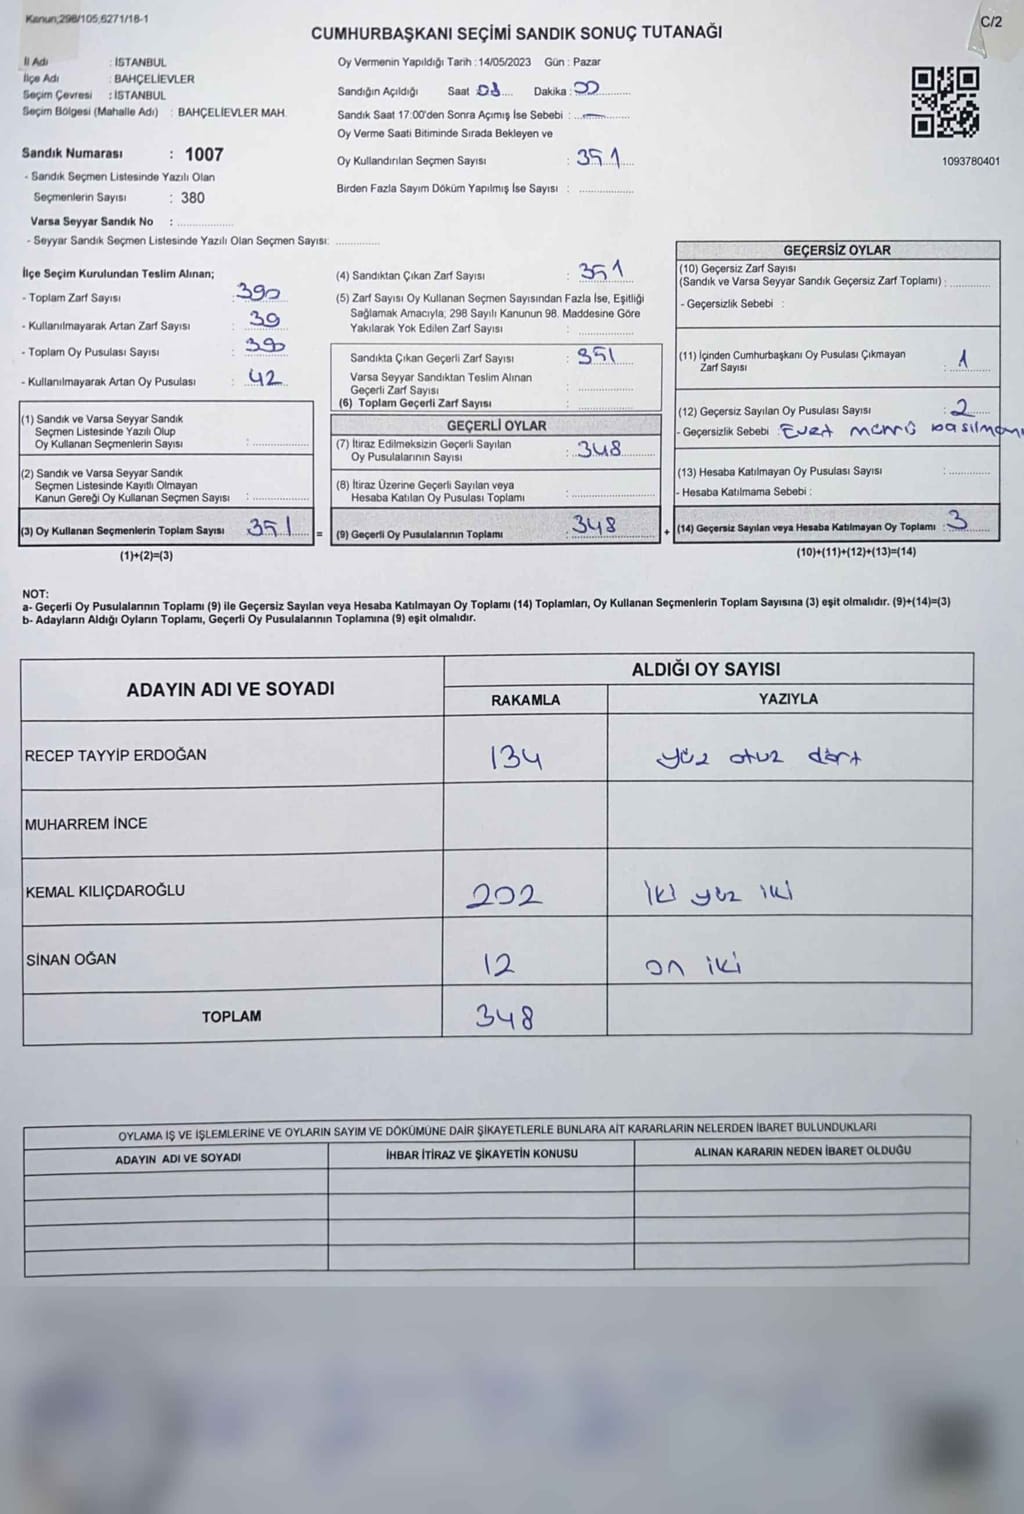 Kanun;298/105;6271/18-1
C/2
CUMHURBAŞKANI SEÇİMİ SANDIK SONUÇ TUTANAĞI
İl Adı : İSTANBUL
İlçe Adı : BAHÇELİEVLER
Seçim Çevresi : İSTANBUL
Seçim Bölgesi (Mahalle Adı) : BAHÇELİEVLER MAH.
Sandık Numarası : 1007
- Sandık Seçmen Listesinde Yazılı Olan
Seçmenlerin Sayısı : 380
Varsa Seyyar Sandık No :
- Seyyar Sandık Seçmen Listesinde Yazılı Olan Seçmen Sayısı:
Oy Vermenin Yapıldığı Tarih : 14/05/2023 Gün : Pazar
Sandığın Açıldığı Saat : 08 Dakika : 00
Sandık Saat 17:00'den Sonra Açımış İse Sebebi : —
Oy Verme Saati Bitiminde Sırada Bekleyen ve
Oy Kullandırılan Seçmen Sayısı : 351
Birden Fazla Sayım Döküm Yapılmış İse Sayısı :
1093780401
İlçe Seçim Kurulundan Teslim Alınan;
- Toplam Zarf Sayısı : 390
- Kullanılmayarak Artan Zarf Sayısı : 39
- Toplam Oy Pusulası Sayısı : 390
- Kullanılmayarak Artan Oy Pusulası : 42
(1) Sandık ve Varsa Seyyar Sandık
Seçmen Listesinde Yazılı Olup
Oy Kullanan Seçmenlerin Sayısı :
(2) Sandık ve Varsa Seyyar Sandık
Seçmen Listesinde Kayıtlı Olmayan
Kanun Gereği Oy Kullanan Seçmen Sayısı :
(3) Oy Kullanan Seçmenlerin Toplam Sayısı 351
(1)+(2)=(3)
=
(4) Sandıktan Çıkan Zarf Sayısı : 351
(5) Zarf Sayısı Oy Kullanan Seçmen Sayısından Fazla İse, Eşitliği
Sağlamak Amacıyla; 298 Sayılı Kanunun 98. Maddesine Göre
Yakılarak Yok Edilen Zarf Sayısı :
Sandıkta Çıkan Geçerli Zarf Sayısı : 351
Varsa Seyyar Sandıktan Teslim Alınan
Geçerli Zarf Sayısı :
(6) Toplam Geçerli Zarf Sayısı :
GEÇERLİ OYLAR
(7) İtiraz Edilmeksizin Geçerli Sayılan
Oy Pusulalarının Sayısı : 348
(8) İtiraz Üzerine Geçerli Sayılan veya
Hesaba Katılan Oy Pusulası Toplamı :
(9) Geçerli Oy Pusulalarının Toplamı : 348
+
GEÇERSİZ OYLAR
(10) Geçersiz Zarf Sayısı
(Sandık ve Varsa Seyyar Sandık Geçersiz Zarf Toplamı) :
- Geçersizlik Sebebi :
(11) İçinden Cumhurbaşkanı Oy Pusulası Çıkmayan
Zarf Sayısı : 1
(12) Geçersiz Sayılan Oy Pusulası Sayısı : 2
- Geçersizlik Sebebi : Evet mührü basılmamı
(13) Hesaba Katılmayan Oy Pusulası Sayısı :
- Hesaba Katılmama Sebebi :
(14) Geçersiz Sayılan veya Hesaba Katılmayan Oy Toplamı : 3
(10)+(11)+(12)+(13)=(14)
NOT:
a- Geçerli Oy Pusulalarının Toplamı (9) ile Geçersiz Sayılan veya Hesaba Katılmayan Oy Toplamı (14) Toplamları, Oy Kullanan Seçmenlerin Toplam Sayısına (3) eşit olmalıdır. (9)+(14)=(3)
b- Adayların Aldığı Oyların Toplamı, Geçerli Oy Pusulalarının Toplamına (9) eşit olmalıdır.
ADAYIN ADI VE SOYADI
ALDIĞI OY SAYISI
RAKAMLA YAZIYLA
RECEP TAYYİP ERDOĞAN 134 yüz otuz dört
MUHARREM İNCE
KEMAL KILIÇDAROĞLU 202 İki yüz iki
SİNAN OĞAN 12 on iki
TOPLAM 348
OYLAMA İŞ VE İŞLEMLERİNE VE OYLARIN SAYIM VE DÖKÜMÜNE DAİR ŞİKAYETLERLE BUNLARA AİT KARARLARIN NELERDEN İBARET BULUNDUKLARI
ADAYIN ADI VE SOYADI İHBAR İTİRAZ VE ŞİKAYETİN KONUSU ALINAN KARARIN NEDEN İBARET OLDUĞU